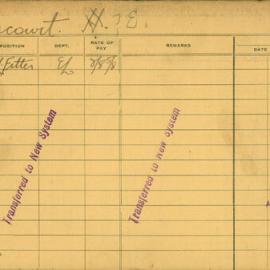 court. H. E.
POSITION DEPT. RATE OF PAY REMARKS DATE
Fitter
Transferred to New System
Transferred to New System